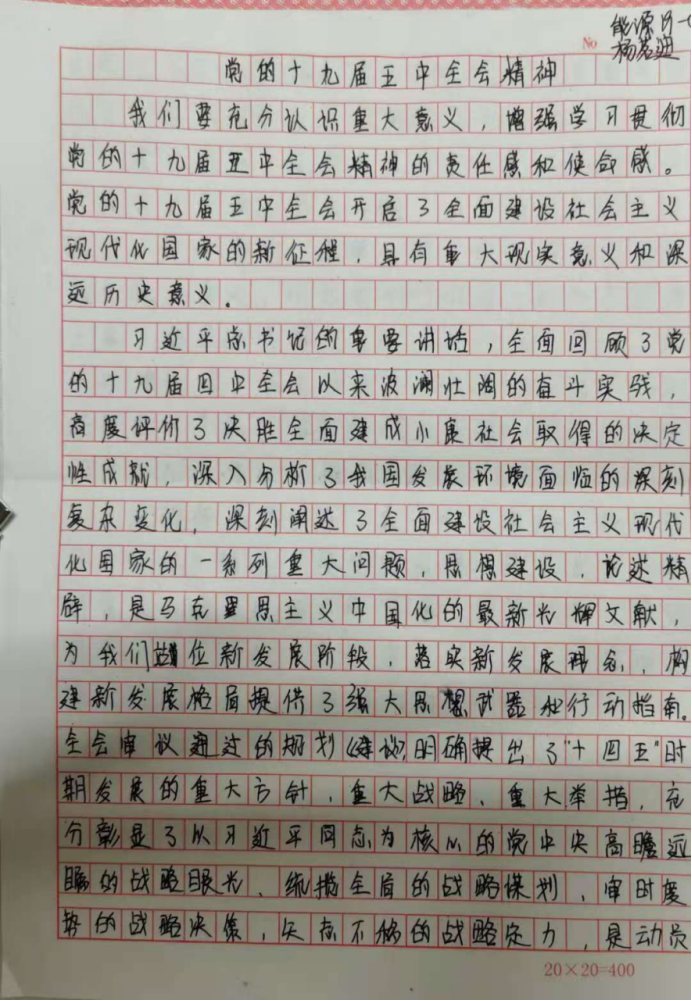 能源
No 杨
党的十九届五中全会精神
我们要充分认识重大意义，增强学习贯彻
党的十九届五中全会精神的责任感和使命感。
党的十九届五中全会开启了全面建设社会主义
现代化国家的新征程，具有重大现实意义和深
远历史意义。
习近平总书记的重要讲话，全面回顾了党
的十九届四中全会以来波澜壮阔的奋斗实践，
高度评价了决胜全面建成小康社会取得的决定
性成就，深入分析了我国发展环境面临的深刻
复杂变化，深刻阐述了全面建设社会主义现代
化国家的一系列重大问题，思想建设，论述精
辟，是马克思主义中国化的最新光辉文献，
为我们站位新发展阶段，落实新发展理念，构
建新发展格局提供了强大思想武器和行动指南。
全会审议通过的规划《建议》明确提出了"十四五"时
期发展的重大方针，重大战略、重大举措，充
分彰显了以习近平同志为核心的党中央高瞻远
瞩的战略眼光、统揽全局的战略谋划，审时度
势的战略决策，矢志不移的战略定力，是动员
20×20=400